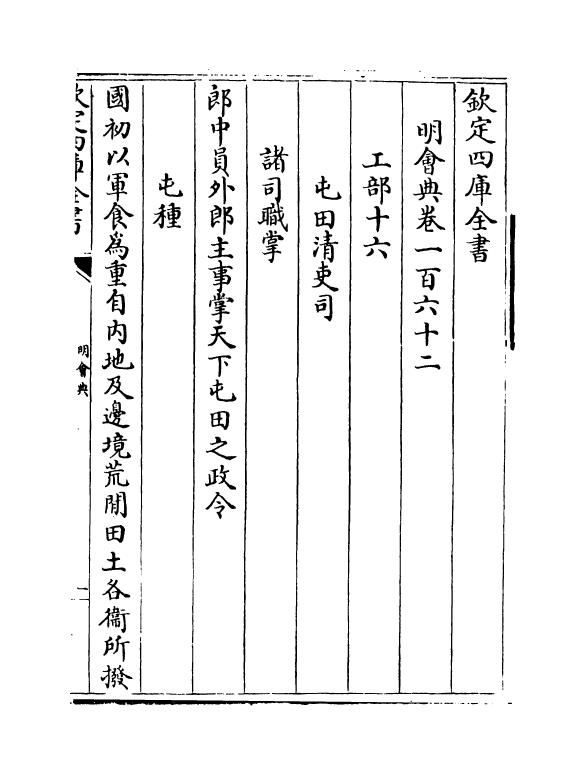 欽定四庫全書
明會典卷一百六十二
工部十六
屯田清吏司
諸司職掌
郎中員外郎主事掌天下屯田之政令
屯種
國初以軍食為重自内地及邊境荒閒田土各衞所撥
欽定四庫全書
明會典
一